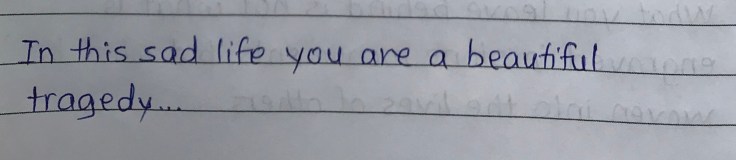 In this sad life you are a beautiful
tragedy...